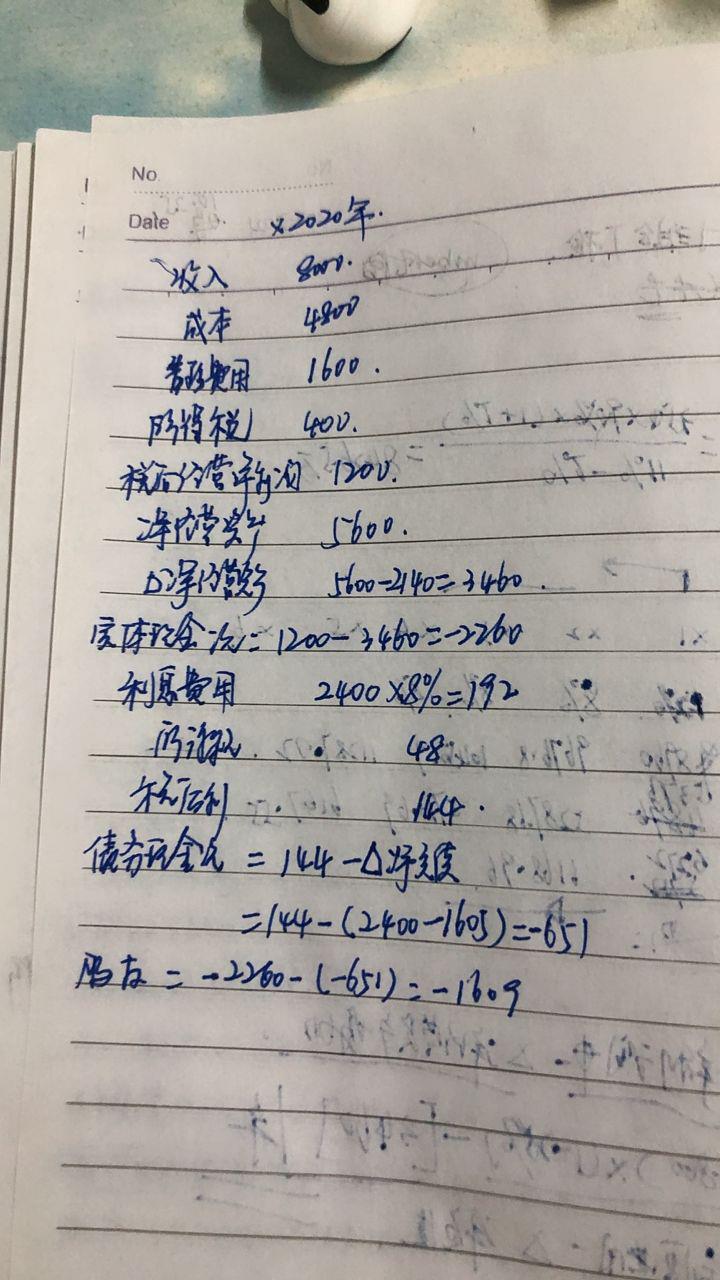 No.
Date
×2020年.
收入 8000.
成本 4800
营防费用 1600.
所得税 400.
税后经营净利润 1200.
净经营资产 5600.
△净经营资产 5600-2140=3460.
实体现金流=1200-3460=-2260
利息费用 2400×8%=192
所得税 48
税后利 144.
债务现金流 =144-△净负债
=144-(2400-1605)=-651
股友 =-2260-(-651)=-1609